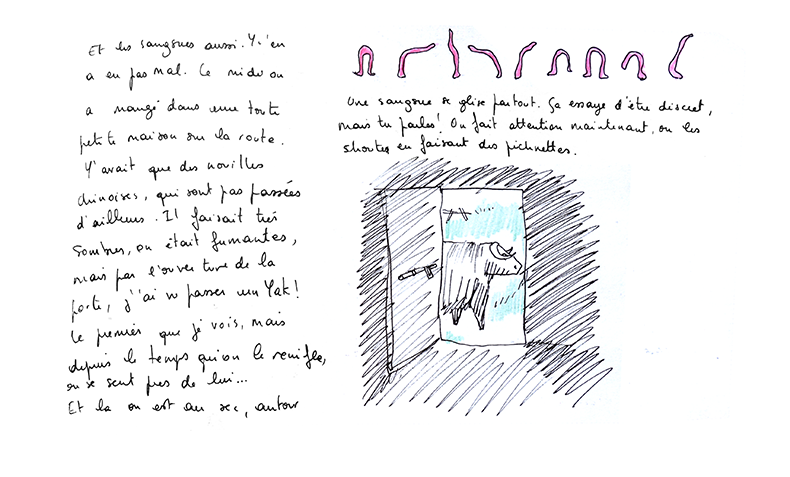 Et les sangsues aussi. Y'en
a eu pas mal. Ce midi on
a mangé dans une toute
petite maison sur la route.
Y'avait que des nouilles
chinoises, qui sont pas passées
d'ailleurs. Il faisait très
sombres, on était fumantes,
mais par l'ouverture de la
porte, j'ai vu passer un Yak!
Le premier que je vois, mais
depuis le temps qu'on le renifle,
on se sent près de lui...
Et la on est au sec, autour
Une sangsue se glisse partout. Ça essaye d'être discret,
mais tu parles! On fait attention maintenant, on les
shootes en faisant des pichnettes.